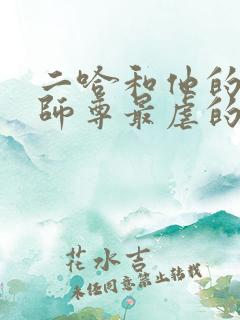 二哈和他的
師尊最虐的
花水吉
未经同意禁止转载